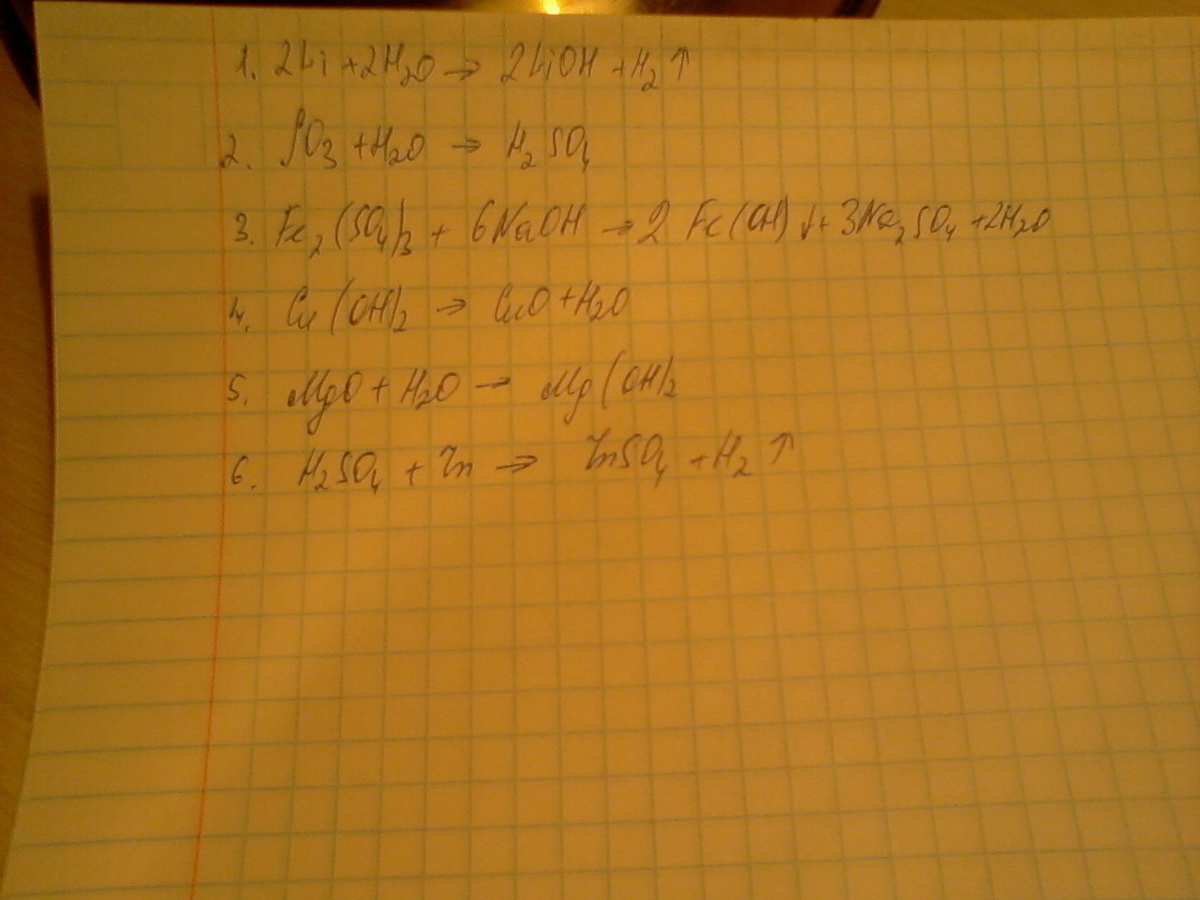 1. 2Li + 2H₂O → 2LiOH + H₂↑
2. SO₃ + H₂O → H₂SO₄
3. Fe₂(SO₄)₃ + 6NaOH → 2Fe(OH)↓ + 3Na₂SO₄ + 2H₂O
4. Cu(OH)₂ → CuO + H₂O
5. MgO + H₂O → Mg(OH)₂
6. H₂SO₄ + Zn → ZnSO₄ + H₂↑